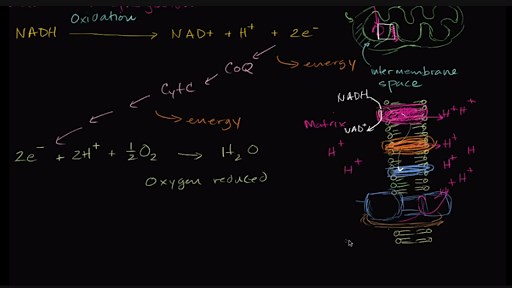 Oxidation
NADH → NAD+ + H+ + 2e-
CoQ
energy
Cyt C
energy
2e- + 2H+ + 1/2 O2 → H2O
Oxygen reduced
intermembrane
space
NADH
NAD+
Matrix
H+ H+
H+ H+
H+ H
H+
H+ H+